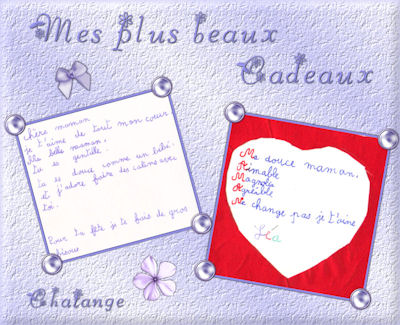 Mes plus beaux
Cadeaux
Chère maman
je t'aime de tout mon coeur
Ma belle maman,
Tu es gentille.
tu es douce comme un bébé.
et j'adore faire des calins avec
toi.
Pour ta fête je te fais de gros
bisous.
Ma douce maman,
Aimable
Magnolia
Agréable
Ne change pas je t'aime
Léa
Chatange